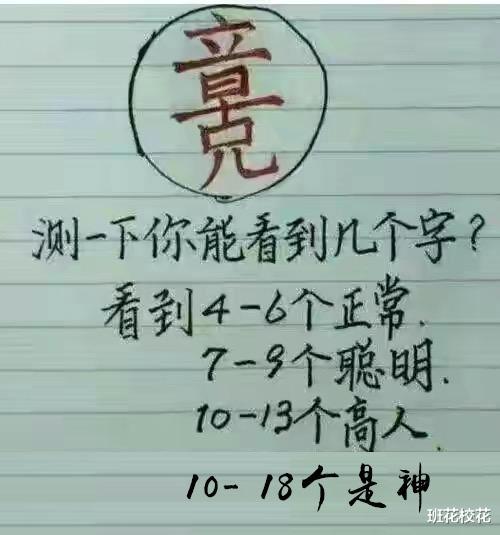 测一下你能看到几个字?
看到4-6个正常.
7-9个聪明.
10-13个高人.
10-18个是神
班花校花